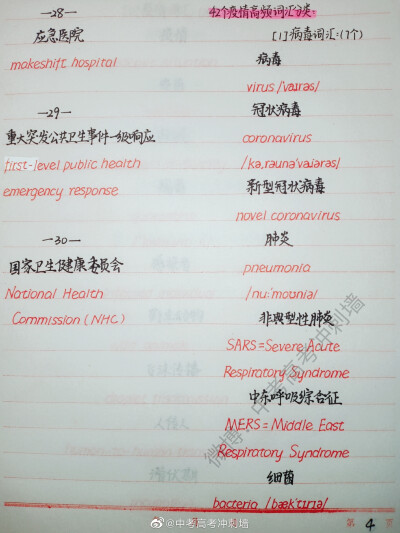 —28—
应急医院
makeshift hospital
—29—
重大突发公共卫生事件一级响应
first-level public health
emergency response
—30—
国家卫生健康委员会
National Health
Commission (NHC)
42个疫情高频词汇分类
[1]病毒词汇:(7个)
病毒
virus /'vaɪrəs/
冠状病毒
coronavirus
/kə,rəʊnə'vaɪərəs/
新型冠状病毒
novel coronavirus
肺炎
pneumonia
/nu:'moʊniə/
非典型性肺炎
SARS=Severe Acute
Respiratory Syndrome
中东呼吸综合征
MERS=Middle East
Respiratory Syndrome
细菌
bacteria /bæk'tɪriə/
微博：中考高考冲刺墙
@中考高考冲刺墙
第 4 页